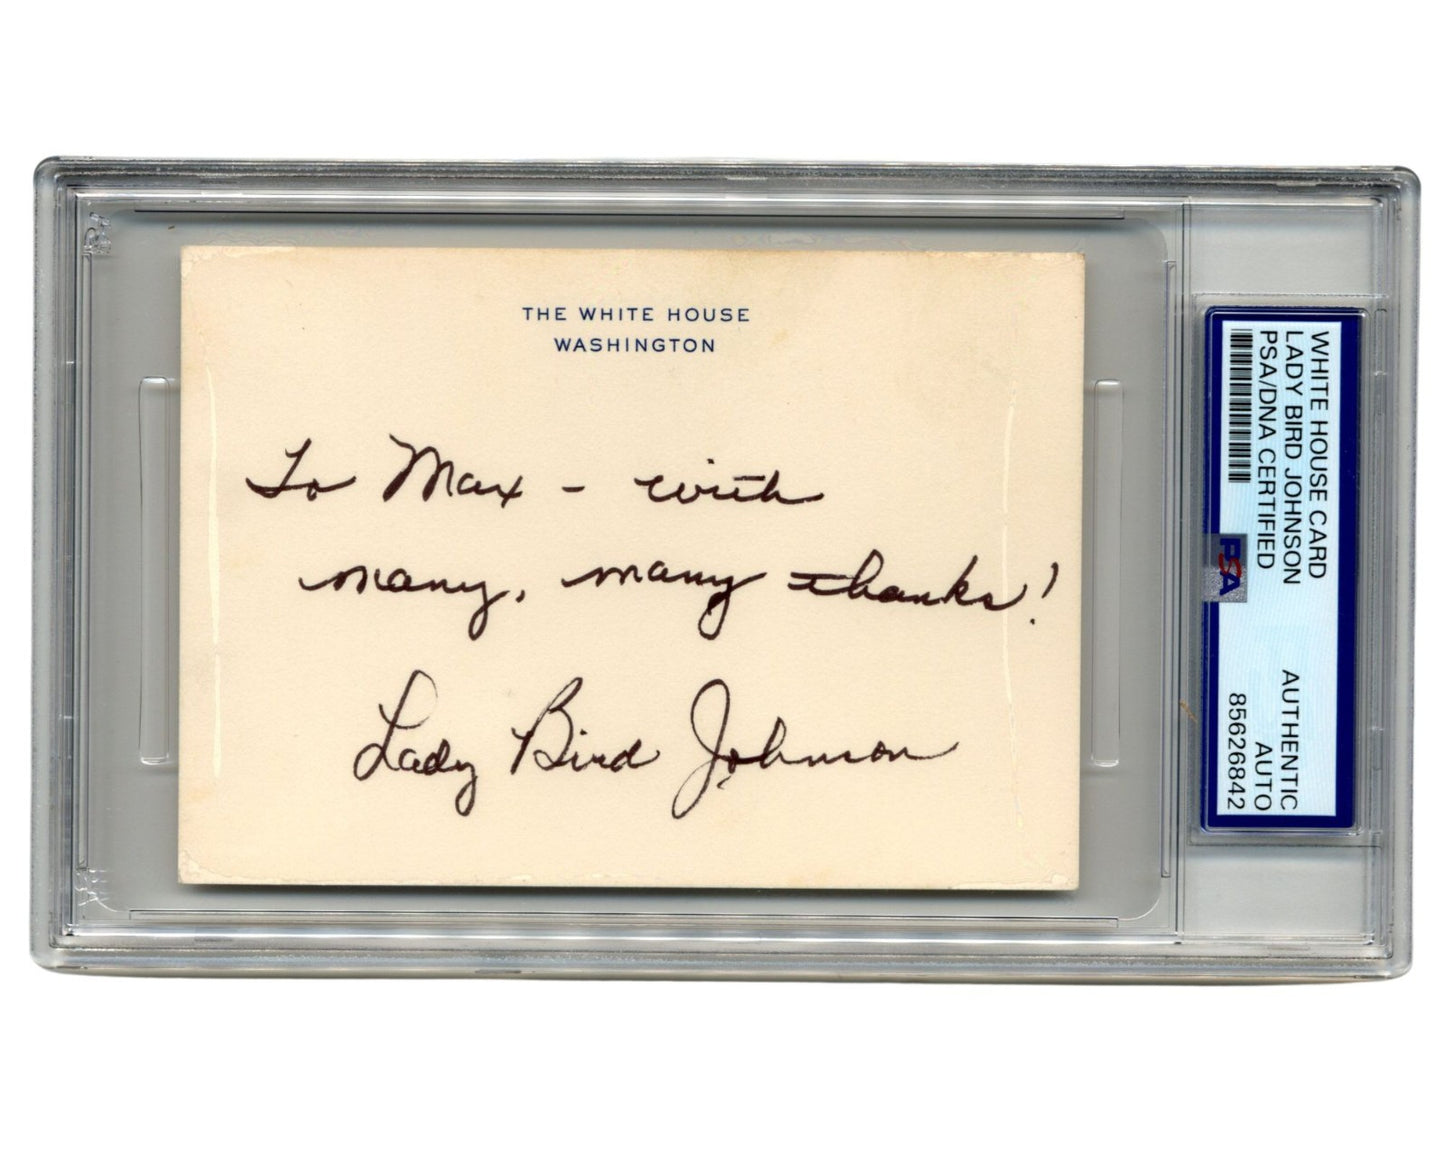 THE WHITE HOUSE
WASHINGTON
To Max - with
many, many thanks!
Lady Bird Johnson
WHITE HOUSE CARD
LADY BIRD JOHNSON
PSA/DNA CERTIFIED
AUTHENTIC
AUTO
85626842
PSA